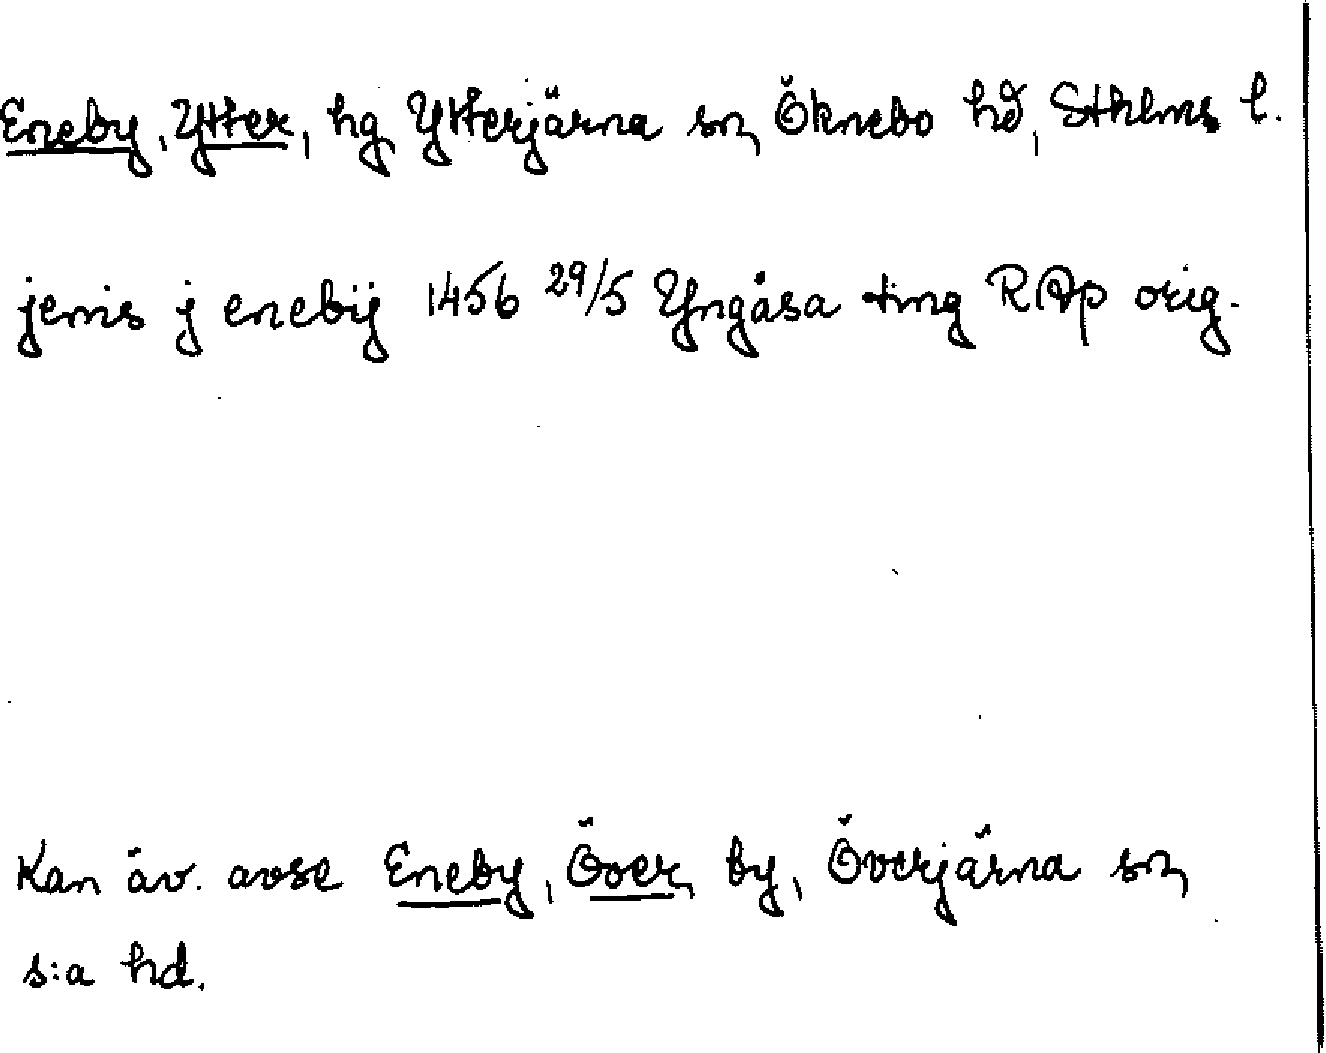 Eneby, Ytter, hg Ytterjärna sn Öknebo hd, Sthlms l.
jenis j enebij 1456 29/5 Yngåsa ting RAp orig.
Kan äv. avse Eneby, Över, by, Överjärna sn
s:a hd.